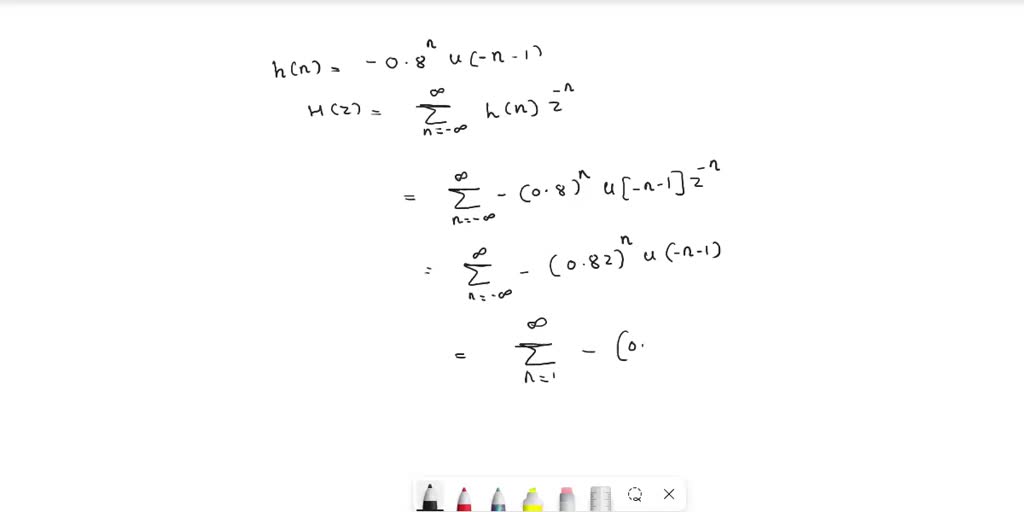 h(n) = - 0.8^n u(-n-1)
H(z) = ∑_{n=-∞}^{∞} h(n) z^{-n}
= ∑_{n=-∞}^{∞} - (0.8)^n u[-n-1] z^{-n}
= ∑_{n=-∞}^{∞} - (0.8z)^n u(-n-1)
= ∑_{n=1}^{∞} - (0.